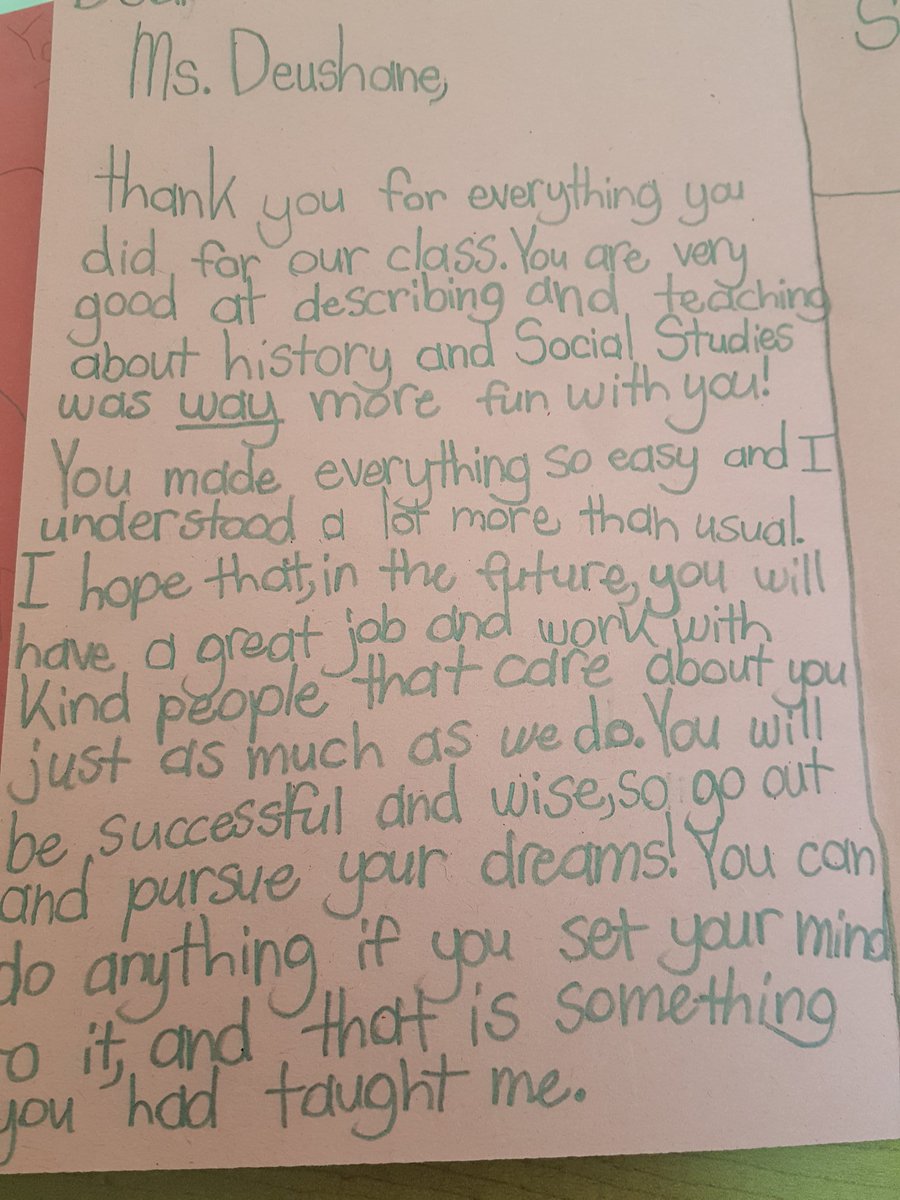 Dear
Ms. Deushane,
thank you for everything you
did for our class. You are very
good at describing and teaching
about history and Social Studies
was way more fun with you!
You made everything so easy and I
understood a lot more than usual.
I hope that, in the future, you will
have a great job and work with
kind people that care about you
just as much as we do. You will
be successful and wise, so go out
and pursue your dreams! You can
do anything if you set your mind
o it, and that is something
you had taught me.
S